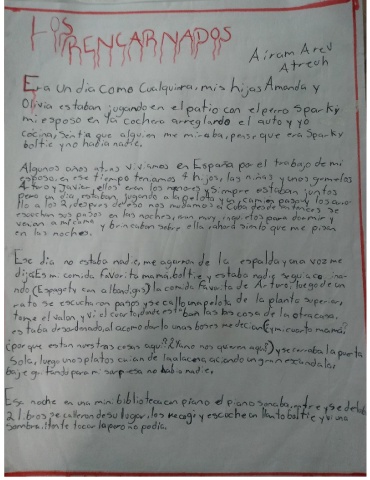 LOS
RENCARNADOS
Airam Area
Atreuh
Era un dia como cualquiera, mis hijas Amanda y
Olivia estaban jugando en el patio con el perro Sparky
mi esposo en la cochera arreglando el auto y yo
cocina, senti a que alguien me miraba, pense que era Sparky
boltie y no habia nadie.
Algunos años atras viviamos en España por el trabajo de mi
esposo, en ese tiempo teniamos 4 hijos, las niñas y unos gemelos
Arturo y Javier, ellos eran los menores y siempre estaban juntos
pero un dia, estaban jugando a la pelota y un camion paso y los
llo a los 2, despues de eso nos mudamos a Cuba desde entonces se
escuchan sus pasos en las noches, eran muy inquietos para dormir y
venian a mi cama y brincaban sobre ella ahora siento que me pisan
en las noches.
Ese dia no estaba nadie, me agarron de la espalda y una voz me
dijo Es mi comida favorita mamá, boltie y estaba nadie segui
(Espagety con albondigas) la comida favorita de Arturo, luego de un
rato se escucharon pasos y se callo una pelota de la planta superior,
tome el valor, y vi el cuarto donde estaban las cosa de la otra casa,
estaba desordenado, al acomodarlo unas voces me decian (y mi cuarto mamá?
(por que estan nuestras cosas aqui? (Ya no nos quieren aqui?) y se cerraba la puerta
sola, luego unos platos caian de la alacena, aciendo un gran escandalo,
baje gritando para mi sorpresa no habia nadie.
Esa noche en una mini biblioteca con piano el piano sonaba, entre y se
2 libros se calleron de su lugar, los recogi y escuche un llanto boltie y vi una
sombra. Intente tocarla pero no podia.